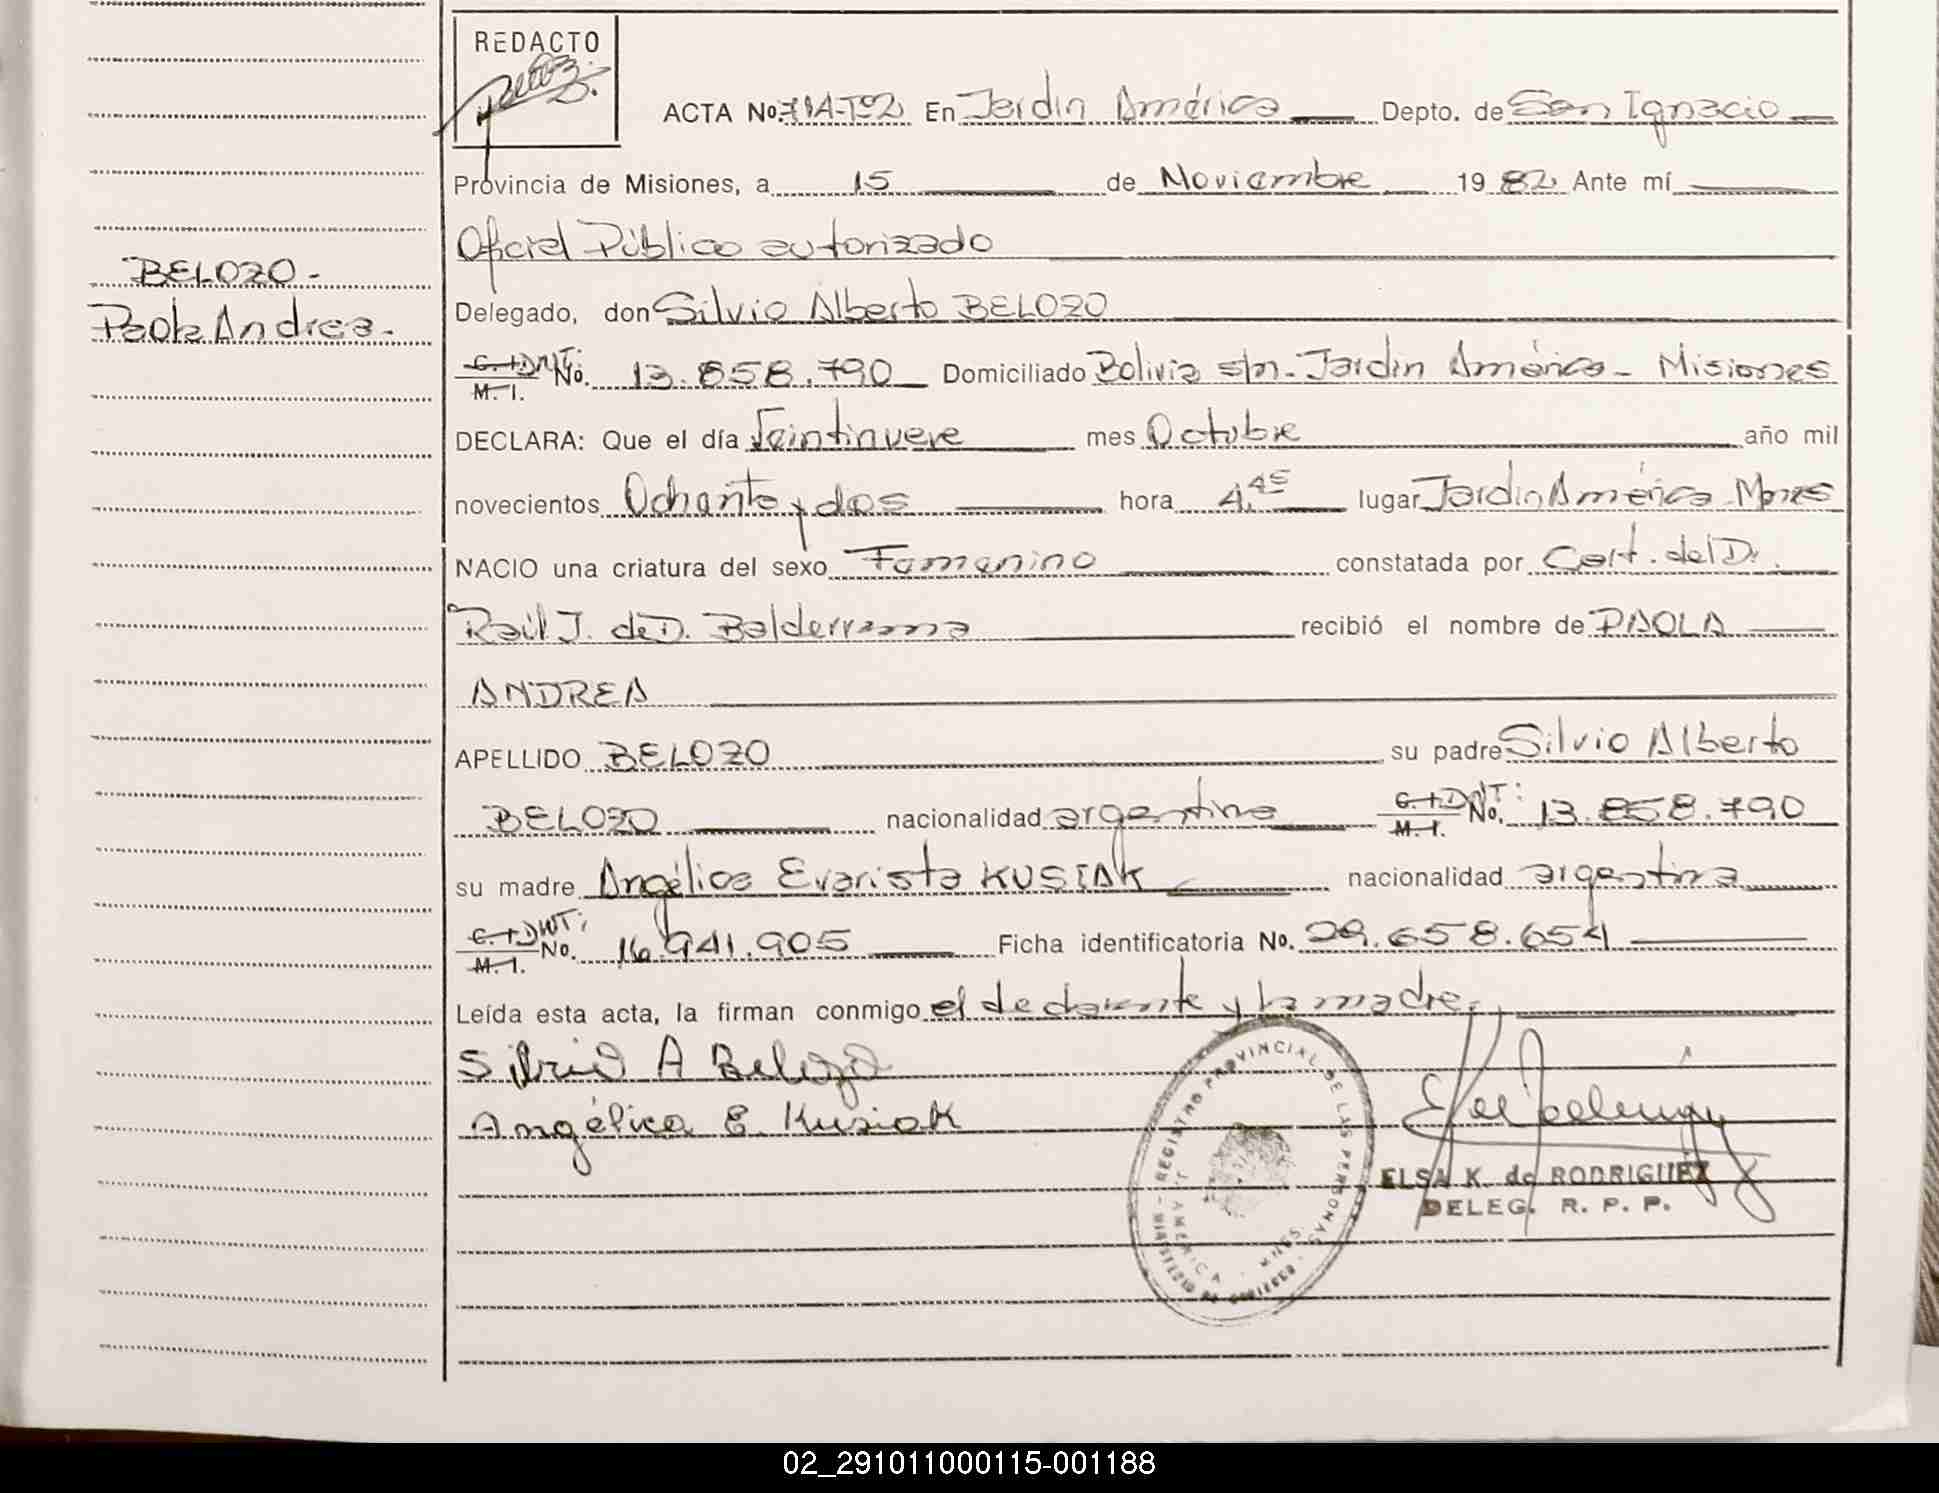 REDACTO
ACTA No. 71A-Tº2 En Jardin América Depto. de San Ignacio
Provincia de Misiones, a 15 de Noviembre 1982 Ante mí
Oficial Público autorizado
BELOZO-
Paola Andrea.
Delegado, don Silvio Alberto BELOZO
C. I. DNI: No. 13.858.790 Domiciliado Bolivia s/n. Jardin América - Misiones
M. I.
DECLARA: Que el día Veintinueve mes Octubre año mil
novecientos Ochenta y dos hora 4,45 lugar Jardin América Mnes
NACIO una criatura del sexo Femenino constatada por Cert. del D.
Raúl J. de D. Balderrama recibió el nombre de PAOLA
ANDREA
APELLIDO BELOZO su padre Silvio Alberto
BELOZO nacionalidad argentina C. I. DNI: No. 13.858.790
M. I.
su madre Angélica Evarista KUSIAK nacionalidad argentina
C. I. DNI: No. 16.941.905 Ficha identificatoria No. 29.658.654
M. I.
Leída esta acta, la firman conmigo el declarante y la madre.
Silvio A Belozo
Angélica E. Kusiak
REGISTRO PROVINCIAL DE LAS PERSONAS
MINISTERIO DE GOBIERNO
AMERICA - MNES.
ELSA K. de RODRIGUEZ
DELEG. R. P. P.
02_291011000115-001188